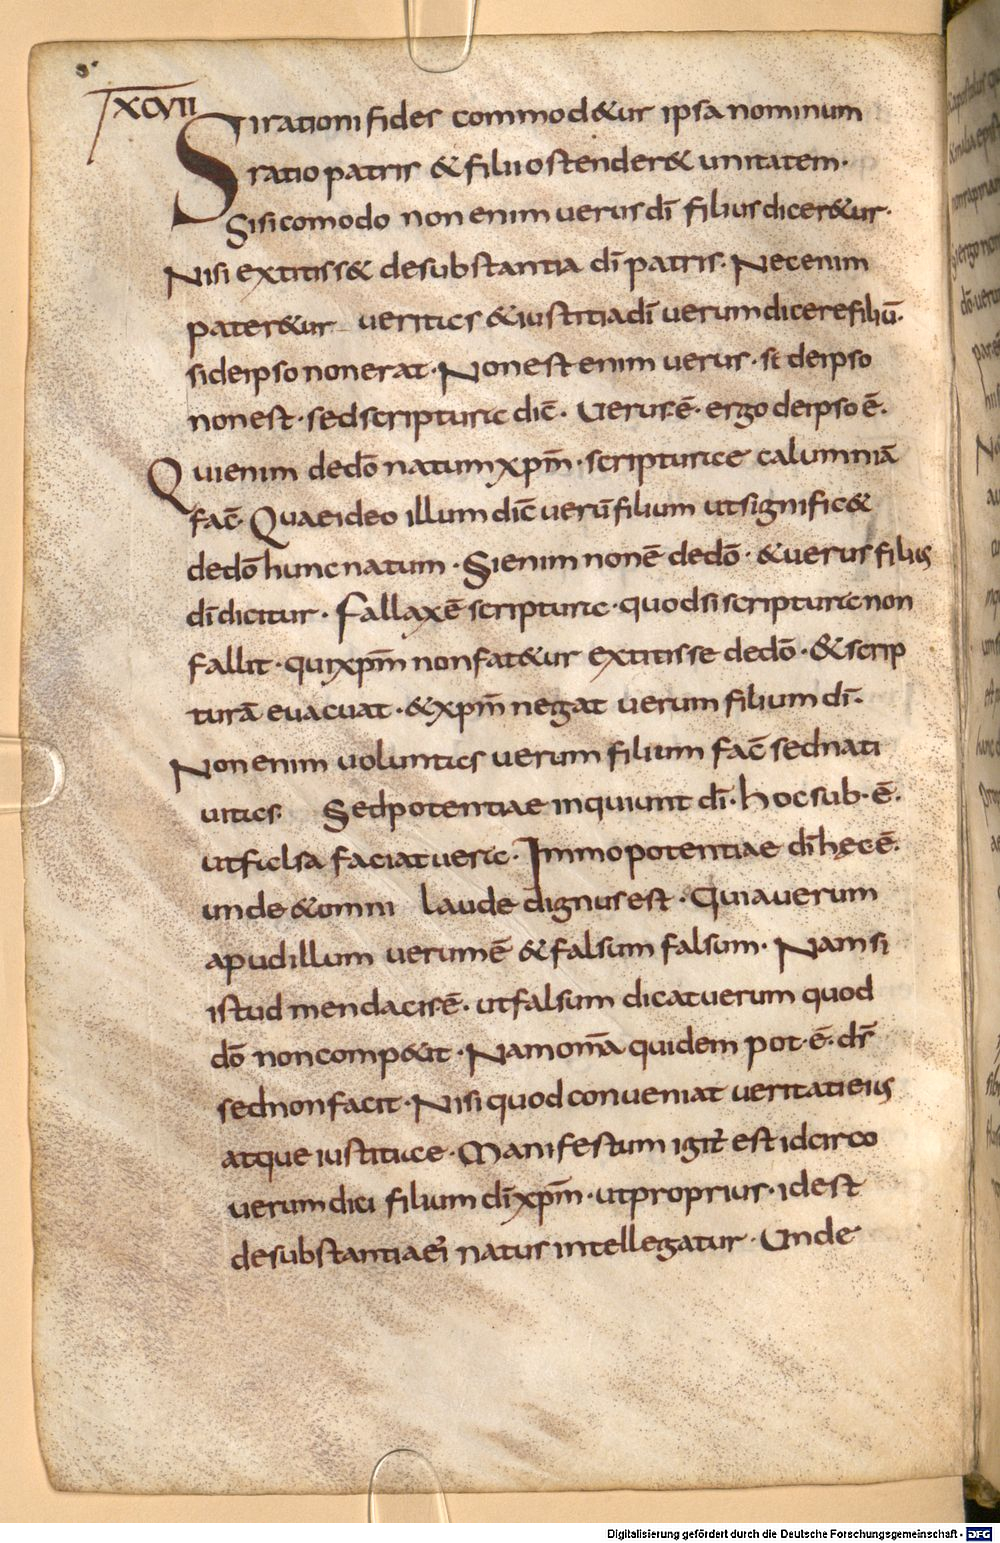 XCVII
Si rationi fides commod&ur ipsa nominum
ratio patris & filii ostender& unitatem·
Si sic omodo non enim uerus dī filius dicer&ur·
Nisi extitiss& de substantia dī patris· Nec enim
pater&ur ueritas & iustitia dī uerum dicere filiū·
si de ipso non erat· Non est enim uerus· si de ipso
non est· sed scriptura dic̄· Uerus ē· ergo de ipso ē·
Qui enim de dō natum xp̄m· scripturae calumniā
fac̄· Quae ideo illum dic̄ uerū filium ut signific&
de dō hunc natum· Si enim non ē de dō· & uerus filius
dī dicitur· Fallax ē scriptura· quod si scriptura non
fallit· qui xp̄m non fat&ur extitisse de dō· & scrip
turā euacuat· & xp̄m negat uerum filium dī·
Non enim uoluntas uerum filium fac̄ sed nati
uitas· Sed potentiae inquiunt dī· hoc sub· ē·
ut falsa faciat uera· Immo potentiae dī hęc ē·
unde & omni laude dignus est· Quia uerum
apud illum uerum ē & falsum falsum· Nam si
istud mendacis ē· ut falsum dicat uerum quod
dō non comp&it· Nam om̄a quidem pot· ē· ds̄
sed non facit· Nisi quod conueniat ueritati eius
atque iustitiae· Manifestum igit̄ est idcirco
uerum dici filium dī xp̄m· ut proprius· id est
de substantia eī natus intellegatur· Unde
Digitalisierung gefördert durch die Deutsche Forschungsgemeinschaft - DFG